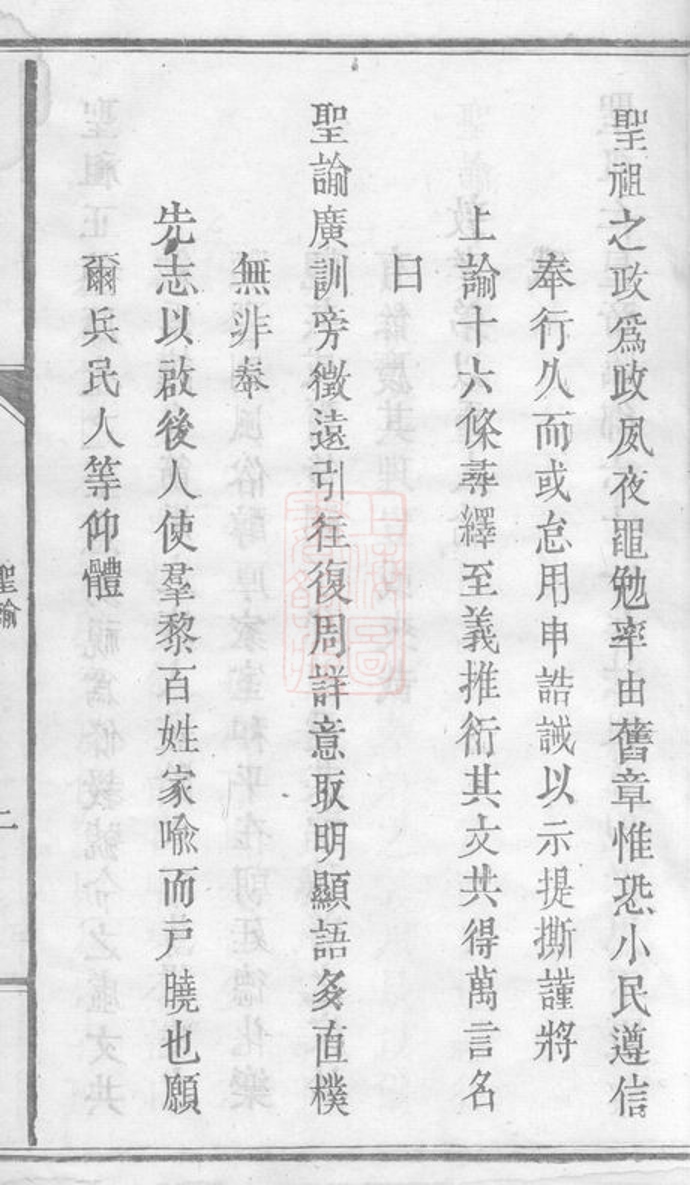 聖祖之政爲政夙夜黽勉率由舊章惟恐小民遵信
奉行久而或怠用申誥誡以示提撕謹將
上諭十六條尋繹至義推衍其文共得萬言名
曰
聖諭廣訓旁徵遠引往復周詳意取明顯語多直樸
無非奉
先志以啟後人使羣黎百姓家喻而戶曉也願
爾兵民人等仰體
聖諭
二